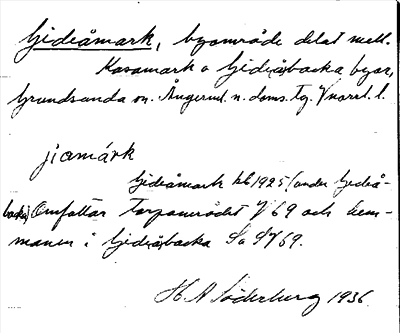 Gideåmark, byområde delat mell.
Kasamark o Gideåbacka byar,
Grundsunda sn. Ångerml. n. doms. tg. Vnorrl. l.
jiamárk
Gideåmark kb 1925 (under Gideå-
backa) Omfattar torpområdet 1/69 och hem-
manen i Gideåbacka
H. A Söderberg 1936.